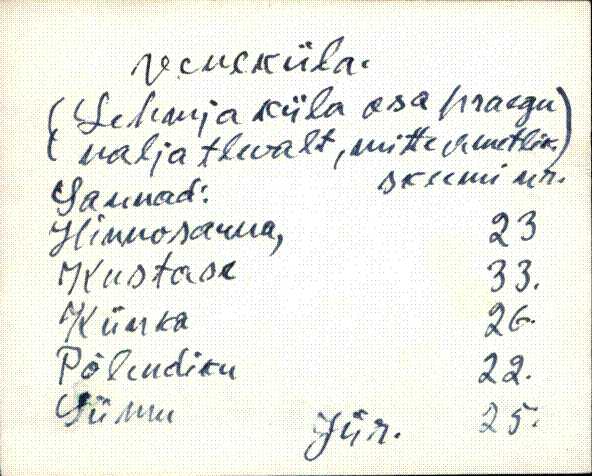 Veneküla.
(Lehmja küla osa praegu
naljatlevalt, mitte ametlik)
Saunad: skeemi nr.
Hinnosauna, 23
Kustase 33.
Künka 26.
Põlendiku 22.
Jür. 25.